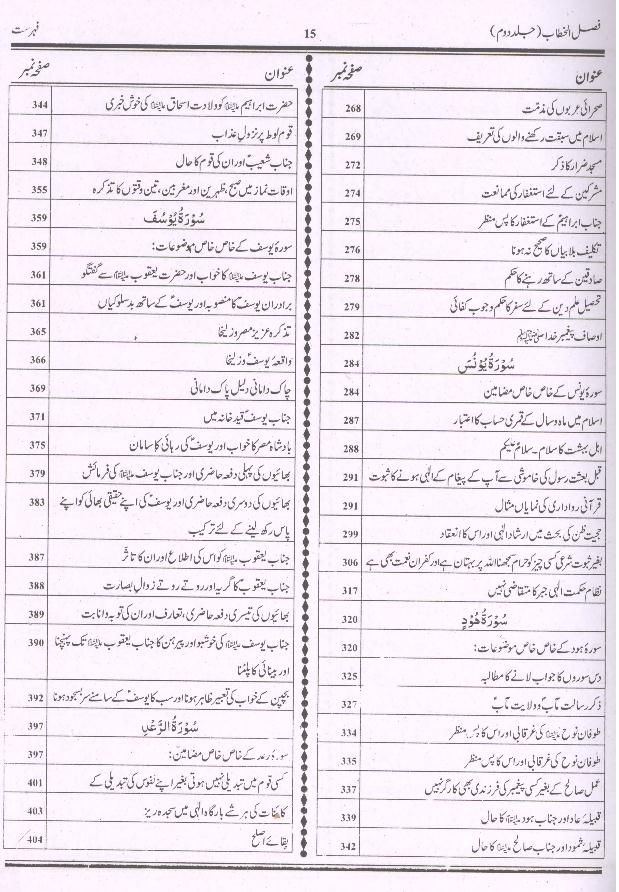 فصل الخطاب (جلد دوم)
15
فہرست
عنوان صفحہ نمبر
صحرائی عربوں کی مذمّت 268
اسلام میں سبقت رکھنے والوں کی تعریف 269
مسجد ضرار کا ذکر 272
مشرکین کے لئے استغفار کی ممانعت 274
جناب ابراہیمؑ کے استغفار کا پس منظر 275
تکلیف بلا بیاں کا صحیح نہ ہونا 276
صادقین کے ساتھ رہنے کا حکم 278
تحصیل علم دین کے لئے سفر کا حکم وجوب کفائی 279
اوصاف پیغمبر خدا ﷺ 282
سُوْرَةُ يُوْنُسَ 284
سورۂ یونس کے خاص خاص مضامین 284
اسلام میں ماہ و سال کے قمری حساب کا اعتبار 287
اہل بہشت کا سلام ۔ سلامٌ علیکم 288
قبل بعثت رسول کی خاموشی سے آپ کے پیغام کے الٰہی ہونے کا ثبوت 291
قرآنی رواداری کی نمایاں مثال 291
حجیت ظن کی بحث میں ارشاد الٰہی اور اس کا انعقاد 299
بغیر ثبوت شرعی کسی چیز کو حرام سمجھنا اللہ پر بہتان ہے اور کفران نعمت بھی ہے 306
نظام حکمت الٰہی جبر کا متقاضی نہیں 317
سُوْرَةُ هُوْدٍ 320
سورۂ ہود کے خاص خاص موضوعات: 320
دس سوروں کا جواب لانے کا مطالبہ 325
ذکر رسالت مآبؐ و ولایت مآبؑ 327
طوفان نوح علیہ السلام کی غرقابی اور اس کا پس منظر 334
طوفان نوح کی غرقابی اور اس کا پس منظر 335
عمل صالح کے بغیر کسی پیغمبر کی فرزندی بھی کارگر نہیں 337
قبیلۂ عاد اور جناب ہود علیہ السلام کا حال 339
قبیلۂ ثمود اور جناب صالح علیہ السلام کا حال 342
عنوان صفحہ نمبر
حضرت ابراہیم علیہ السلام کو ولادت اسحاق علیہ السلام کی خوش خبری 344
قوم لوط پر نزول عذاب 347
جناب شعیبؑ اور ان کی قوم کا حال 348
اوقات نماز میں صبح، ظہرین اور مغربین، تین وقتوں کا تذکرہ 355
سُوْرَةُ يُوْسُفَ 359
سورۂ یوسف کے خاص خاص موضوعات: 359
جناب یوسف علیہ السلام کا خواب اور حضرت یعقوب علیہ السلام سے گفتگو 361
برادران یوسفؑ کا منصوبہ اور یوسفؑ کے ساتھ بدسلوکیاں 361
تذکرہ عزیز مصر و زلیخا 365
واقعۂ یوسفؑ و زلیخا 366
چاک دامانی دلیل پاک دامانی 369
جناب یوسفؑ قید خانہ میں 371
بادشاہ مصر کا خواب اور یوسفؑ کی رہائی کا سامان 375
بھائیوں کی پہلی دفعہ حاضری اور جناب یوسف علیہ السلام کی فرمائش 379
بھائیوں کی دوسری دفعہ حاضری اور یوسفؑ کی اپنے حقیقی بھائی کو اپنے 383
پاس رکھ لینے کے لئے ترکیب
جناب یعقوب علیہ السلام کو اس کی اطلاع اور ان کا تاثر 387
جناب یعقوبؑ کا گریہ اور روتے روتے زوال بصارت 388
بھائیوں کی تیسری دفعہ حاضری، تعارف اور ان کی توبہ و انابت 389
جناب یوسف علیہ السلام کی خوشبو اور پیرہن کا جناب یعقوب علیہ السلام تک پہنچنا 390
اور بینائی کا پلٹنا
بچپن کے خواب کی تعبیر ظاہر ہونا اور سب کا یوسفؑ کے سامنے سر بسجود ہونا 392
سُوْرَةُ الرَّعْدِ 397
سورۂ رعد کے خاص خاص مضامین: 397
کسی قوم میں تبدیلی نہیں ہوتی بغیر اپنے نفوس کی تبدیلی کے 401
کائنات کی ہر شے بارگاہ الٰہی میں سجدہ ریز 403
بقائے اصلح 404